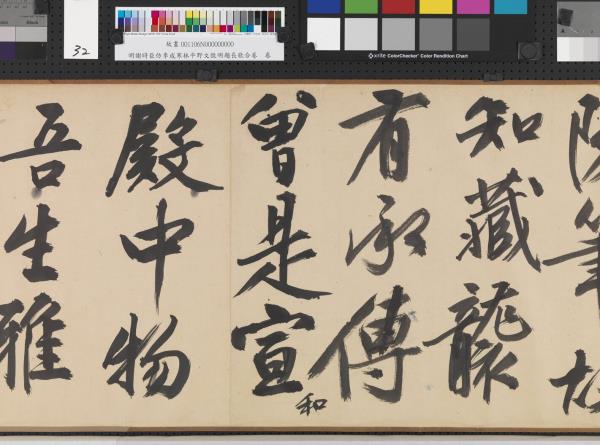 Black
32
故畫 001106N000000000
明謝時臣仿李成寒林平野文徵明題長歌合卷 卷
x-rite ColorChecker Color Rendition Chart
筆
知藏龍
有承傳
曾是宣和
殿中物
吾生雅